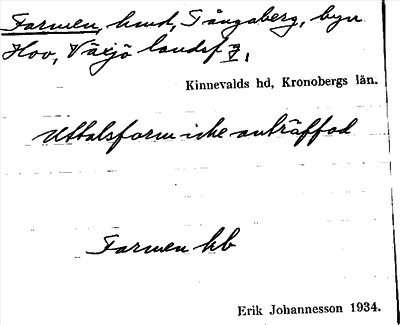 Farmen, hmd, Tångaberg, byn
Hov, Växjö landsf 7,
Kinnevalds hd, Kronobergs län.
Uttalsform icke anträffad
Farmen kb
Erik Johannesson 1934.